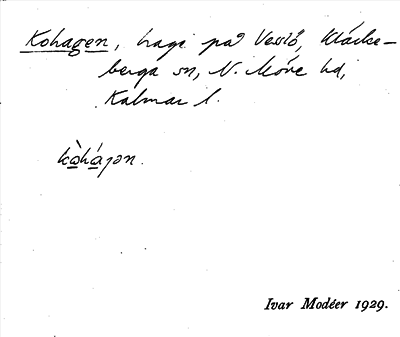 Kohagen, hage på Vesslö, Kläcke-
berga sn, N. Möre hd,
Kalmar l.
kòhájən.
Ivar Modéer 1929.